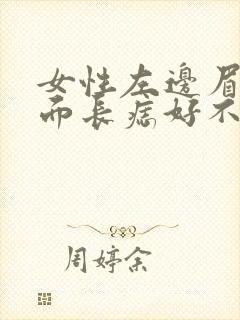 女性左邊眉
而長痣好不
周婷余